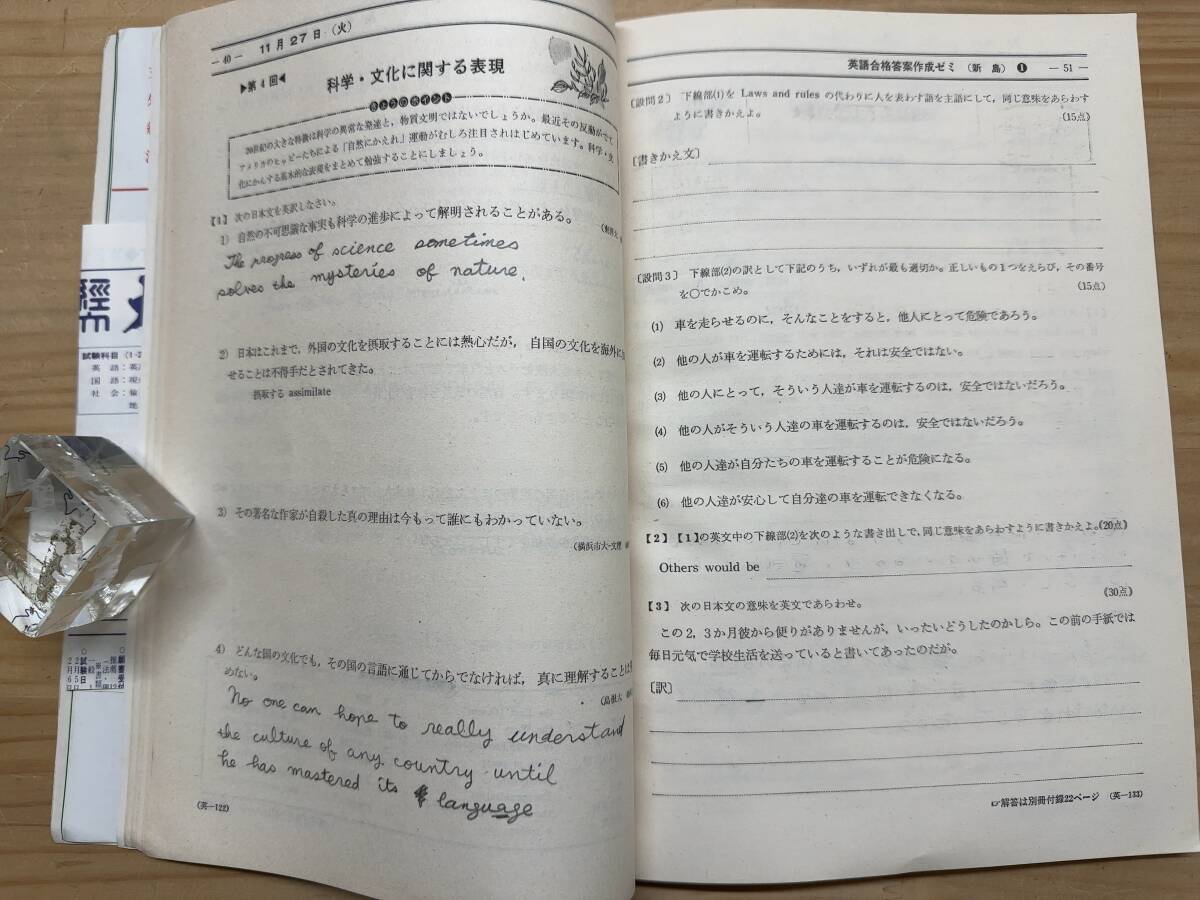 — 40 — 11月27日(火)
▶第4回◀ 科学・文化に関する表現
きょうのポイント
20世紀の大きな特徴は科学の異常な発達と,物質文明ではないでしょうか。最近その反動がでて
アメリカのヒッピーたちによる「自然にかえれ」運動がむしろ注目されはじめています。科学・文
化にかんする基本的な表現をまとめて勉強することにしましょう。
【1】 次の日本文を英訳しなさい。
1) 自然の不可思議な事実も科学の進歩によって解明されることがある。
The progress of science sometimes
solves the mysteries of nature.
2) 日本はこれまで,外国の文化を摂取することには熱心だが,自国の文化を海外に
せることは不得手だとされてきた。
摂取する assimilate
3) その著名な作家が自殺した真の理由は今もって誰にもわかっていない。
(横浜市大-文理
4) どんな国の文化でも,その国の言語に通じてからでなければ,真に理解することは
めない。
(島根大
No one can hope to really understand
the culture of any country until
he has mastered its language
(英—122)
英語合格答案作成ゼミ (新 島) ❶ — 51 —
〔設問2〕 下線部(1)を Laws and rules の代わりに人を表わす語を主語にして,同じ意味をあらわす
ように書きかえよ。 (15点)
〔書きかえ文〕
〔設問3〕 下線部(2)の訳として下記のうち,いずれが最も適切か。正しいもの1つをえらび,その番号
を○でかこめ。 (15点)
(1) 車を走らせるのに,そんなことをすると,他人にとって危険であろう。
(2) 他の人が車を運転するためには,それは安全ではない。
(3) 他の人にとって,そういう人達が車を運転するのは,安全ではないだろう。
(4) 他の人がそういう人達の車を運転するのは,安全ではないだろう。
(5) 他の人達が自分たちの車を運転することが危険になる。
(6) 他の人達が安心して自分達の車を運転できなくなる。
【2】【1】の英文中の下線部(2)を次のような書き出しで,同じ意味をあらわすように書きかえよ。(20点)
Others would be
【3】 次の日本文の意味を英文であらわせ。 (30点)
この2,3か月彼から便りがありませんが,いったいどうしたのかしら。この前の手紙では
毎日元気で学校生活を送っていると書いてあったのだが。
〔訳〕
☞解答は別冊付録22ページ (英—133)
試験科目
英 語:英
国 語:現
社 会:倫
地